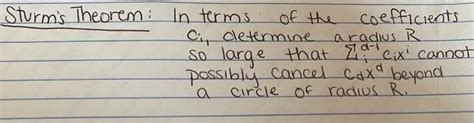 Sturm's Theorem: In terms of the coefficients
Ci, determine a radius R
so large that Σ_i^{d-1} cixⁱ cannot
possibly cancel cdx^d beyond
a circle of radius R.